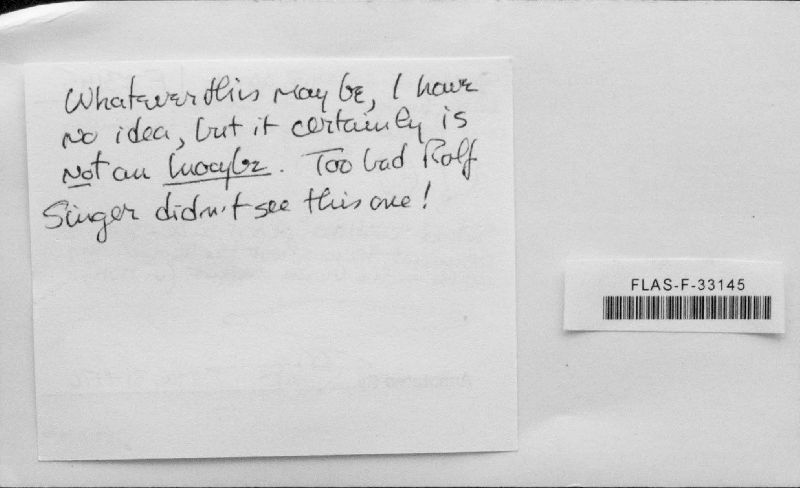 Whatever this may be, I have
no idea, but it certainly is
not an Inocybe. Too bad Rolf
Singer didn't see this one!
FLAS-F-33145